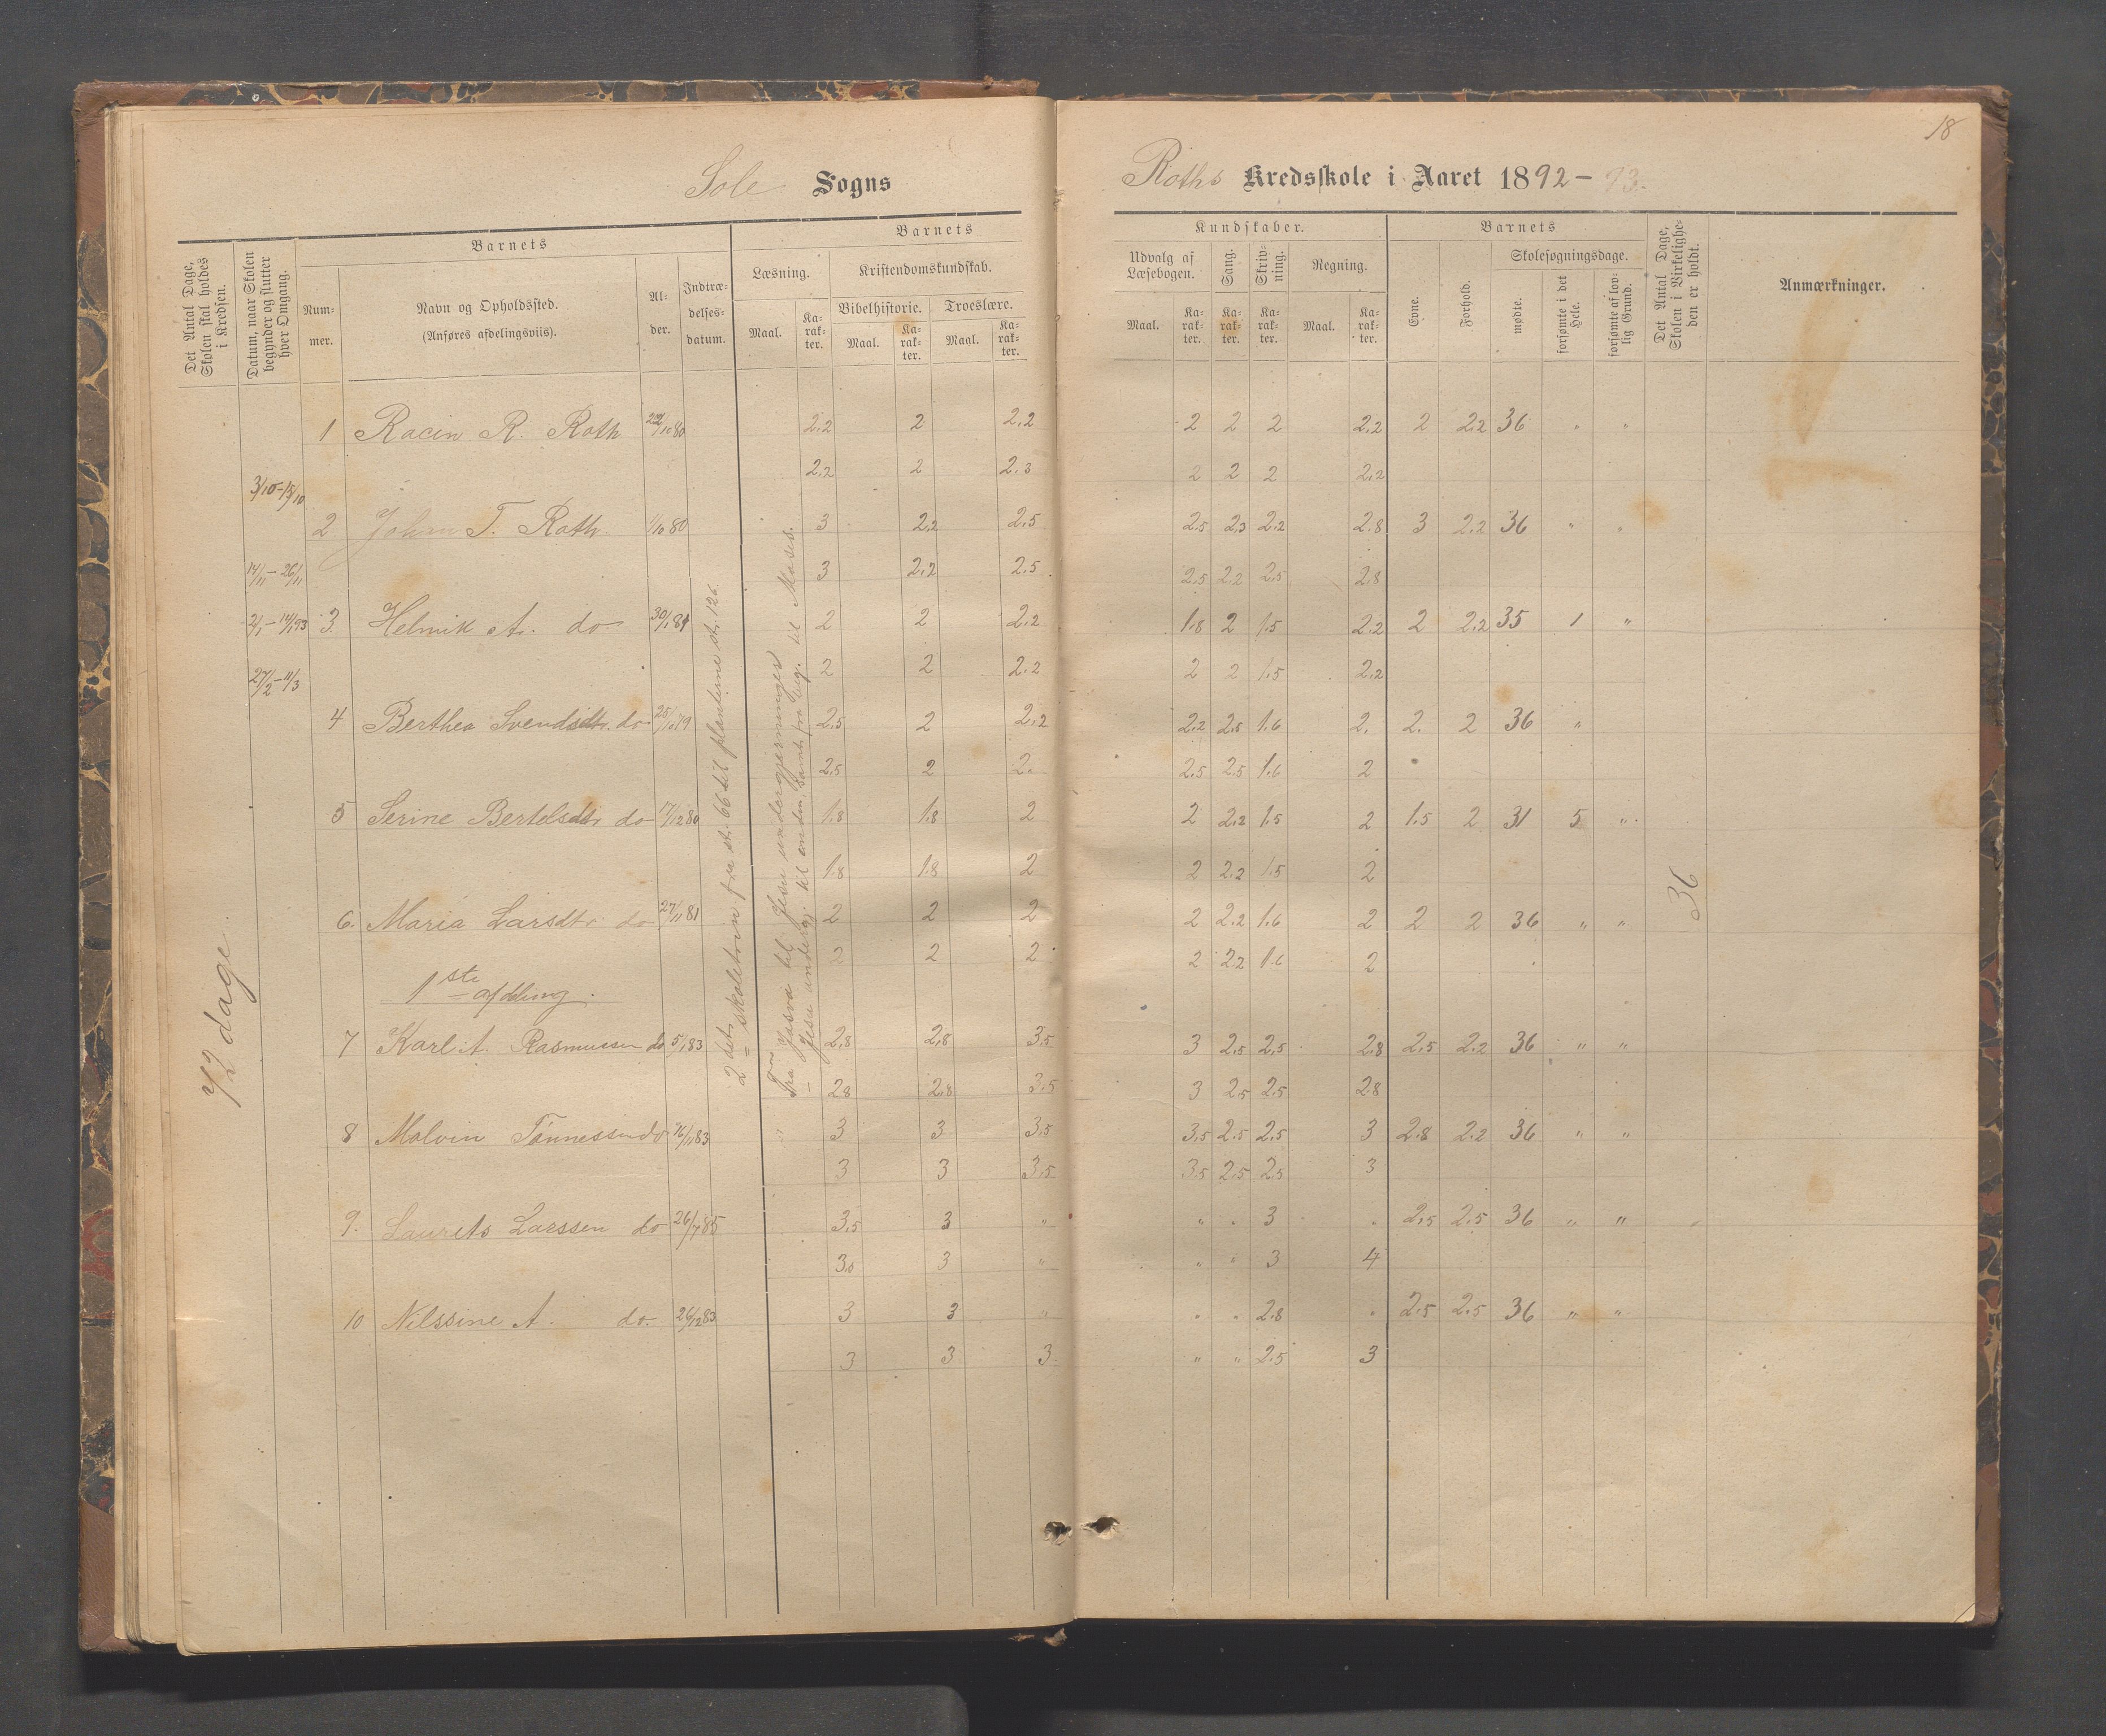 18
Sole Sogns
Roths Kredsskole i Aaret 1892-93.
Det Antal Dage, Skolen skal holdes i Kredsen.
Datum, naar Skolen begynder og slutter hver Omgang.
Barnets
Nummer.
Navn og Opholdssted.
(Anføres afdelingsviis).
Alder.
Indtrædelsesdatum.
Barnets
Læsning.
Kristendomskundskab.
Bibelhistorie.
Troeslære.
Maal.
Karakter.
Maal.
Karakter.
Maal.
Karakter.
Kundskaber.
Udvalg af Læsebogen.
Sang.
Skrivning.
Regning.
Maal.
Karakter.
Karakter.
Karakter.
Maal.
Karakter.
Barnets
Evne.
Forhold.
Skolesøgningsdage.
mødte.
forsømte i det Hele.
forsømte af lovlig Grund.
Det Antal Dage, Skolen i Virkeligheden er holdt.
Anmærkninger.
1 Racin R. Roth 22/10 80 2,2 2 2,2 2 2 2 2,2 2 2,2 36 " "
2,2 2 2,3 2 2 2 2,2
3/10-15/10
2 Johan T. Roth 1/10 80 3 2,2 2,5 2,5 2,3 2,2 2,8 3 2,2 36 " "
14/11-26/11 3 2,2 2,5 2,5 2,2 2,5 2,8
2/1-14/1 93 3. Helmik A. do 30/1 81 2 2 2,2 1,8 2 1,5 2,2 2 2,2 35 1 "
27/2-11/3 2 2 2,2 2 2 1,5 2,2
4 Berthea Svendsdtr. do 25/10 79 2,5 2 2,2 2,2 2,5 1,6 2. 2. 2 36 "
2,5 2 2. 2,5 2,5 1,6 2
5 Serine Bertelsdtr do 17/12 80 1,8 1,8 2 2 2,2 1,5 2 1,5 2 31 5 "
1,8 1,8 2 2 2,2 1,5 2
6. Maria Larsdtr do 27/11 81 2 2 2 2 2,2 1,6 2 2 2 36 " "
2 2 2 2 2,2 1,6 2
1ste afdeling.
7 Karl A. Rasmussen do 5/1 83 2,8 2,8 3,5 3 2,5 2,5 2,8 2,5 2,2 36 " "
2,8 2,8 3,5 3 2,5 2,5 2,8
8 Malvin Tønnessen do 16/11 83 3 3 3,5 3,5 2,5 2,5 3 2,8 2,2 36 " "
3 3 3,5 3,5 2,5 2,5 3
9. Laurits Larssen do 26/7 85 3,5 3 " " " 3 " 2,5 2,5 36 " "
3,5 3 " " " 3 4
10 Nilssine A. do. 26/12 83 3 3 " " " 2,8 " 2,5 2,5 36 " "
3 3 3 " " 2,5 3
72 dage
2det skoletrin fra st. 66 til planterne st. 126.
Fra Josva til Jesu undergjerninger
Jesu undergj. til enden, samt fra beg. til Moses.
36